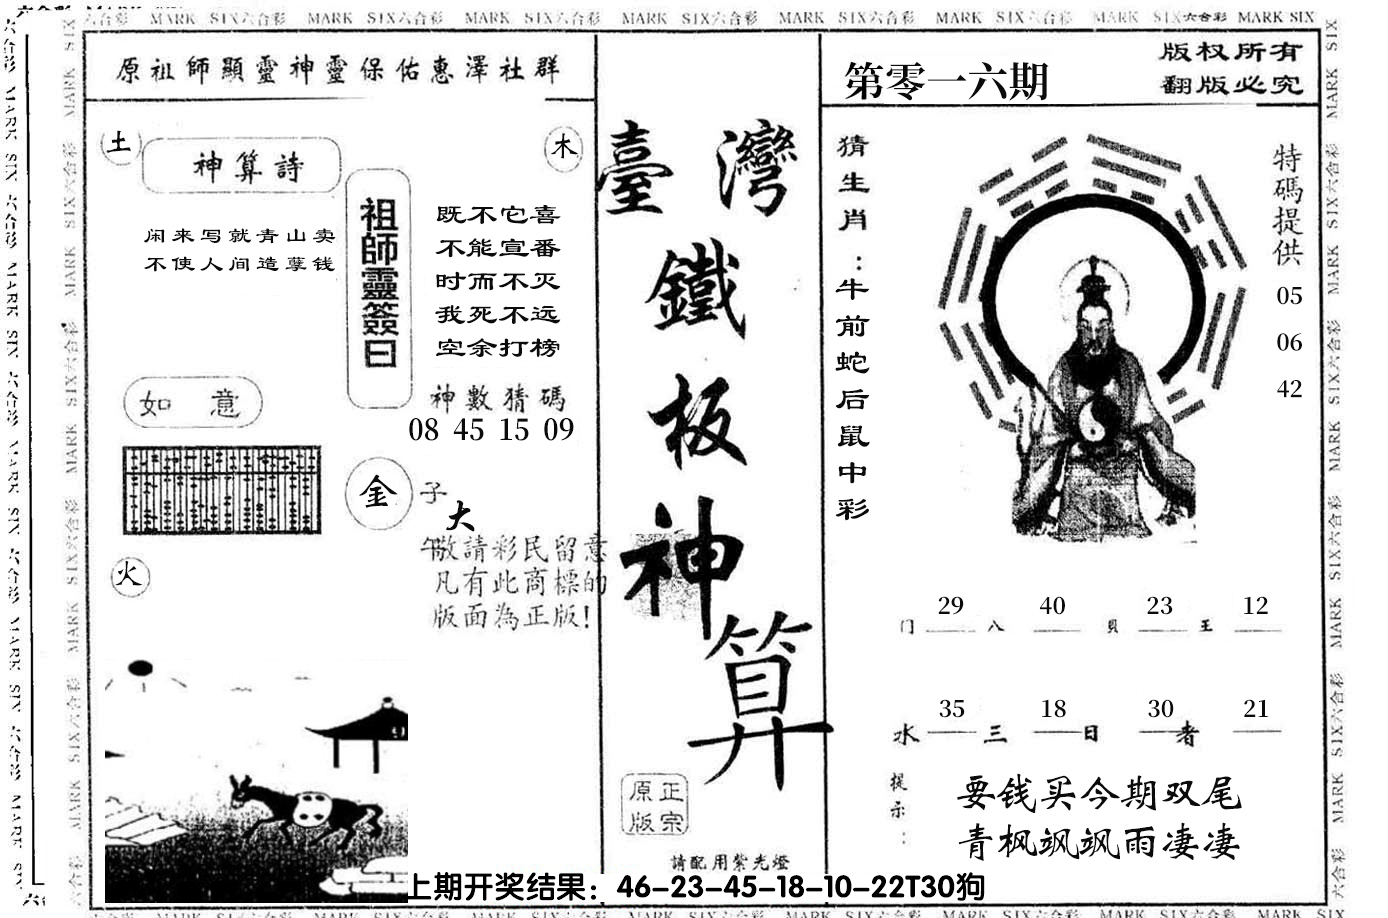 六合彩 MARK SIX六合彩 MARK SIX六合彩 MARK SIX六合彩 MARK SIX六合彩 MARK SIX六合彩 MARK SIX六合彩 MARK SIX六合彩 MARK SIX
原祖師顯靈神靈保佑惠澤社群
土
神算詩
木
闲来写就青山卖
不使人间造孽钱
祖師靈簽曰
既不它喜
不能宣番
时而不灭
我死不远
空余打榜
如 意
神數猜碼
08 45 15 09
金
子
大
午敬請彩民留意
凡有此商標的
版面為正版!
火
臺灣
鐵
板
神
算
原正
版宗
請配用紫光燈
第零一六期
版权所有
翻版必究
猜生肖:牛前蛇后鼠中彩
特碼提供
05
06
42
29 40 23 12
门 八 貝 王
35 18 30 21
水 三 日 者
提示:
要钱买今期双尾
青枫飒飒雨凄凄
上期开奖结果：46-23-45-18-10-22T30狗